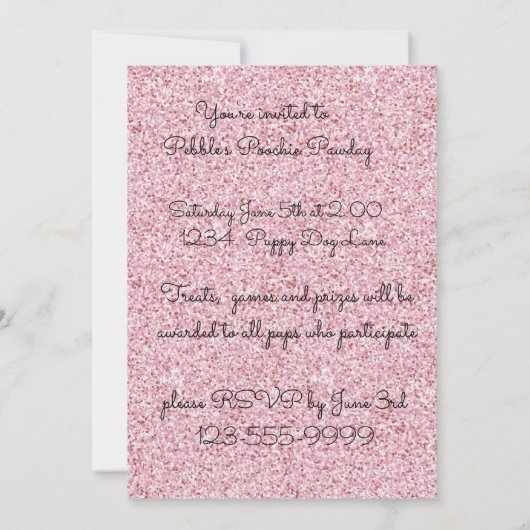 You're invited to
Pebble's Poochie Pawday
Saturday June 5th at 2:00
1234 Puppy Dog Lane
Treats, games and prizes will be
awarded to all pups who participate
please RSVP by June 3rd
123-555-9999